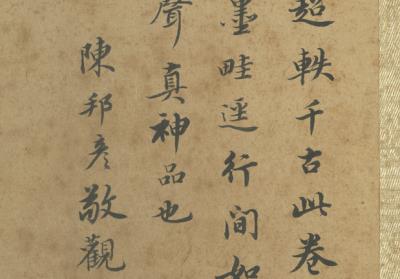 超軼千古此卷
墨畦逕行間如
聲真神品也
陳邦彥敬觀